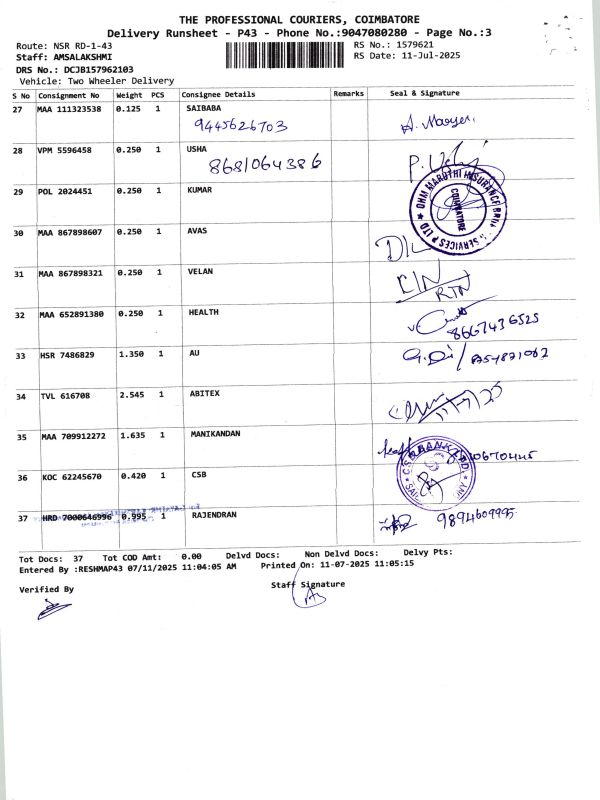 THE PROFESSIONAL COURIERS, COIMBATORE
Delivery Runsheet - P43 - Phone No.:9047080280 - Page No.:3
Route: NSR RD-1-43
RS No.: 1579621
Staff: AMSALAKSHMI
RS Date: 11-Jul-2025
DRS No.: DCJB157962103
Vehicle: Two Wheeler Delivery
S No Consignment No Weight PCS Consignee Details Remarks Seal & Signature
27 MAA 111323538 0.125 1 SAIBABA
9445626703
28 VPM 5596458 0.250 1 USHA
8681064386
29 POL 2024451 0.250 1 KUMAR
OHM MARUTHI INSURANCE
COIMBATORE
SERVICES P LTD
30 MAA 867898607 0.250 1 AVAS
D/L
31 MAA 867898321 0.250 1 VELAN
RTN
32 MAA 652891380 0.250 1 HEALTH
8667436525
33 HSR 7486829 1.350 1 AU
34 TVL 616708 2.545 1 ABITEX
11/7/25
35 MAA 709912272 1.635 1 MANIKANDAN
36 KOC 62245670 0.420 1 CSB
CSB BANK LTD
37 HRD 7000646996 0.995 1 RAJENDRAN
9894609995
Tot Docs: 37 Tot COD Amt: 0.00 Delvd Docs: Non Delvd Docs: Delvy Pts:
Entered By :RESHMAP43 07/11/2025 11:04:05 AM Printed On: 11-07-2025 11:05:15
Verified By
Staff Signature